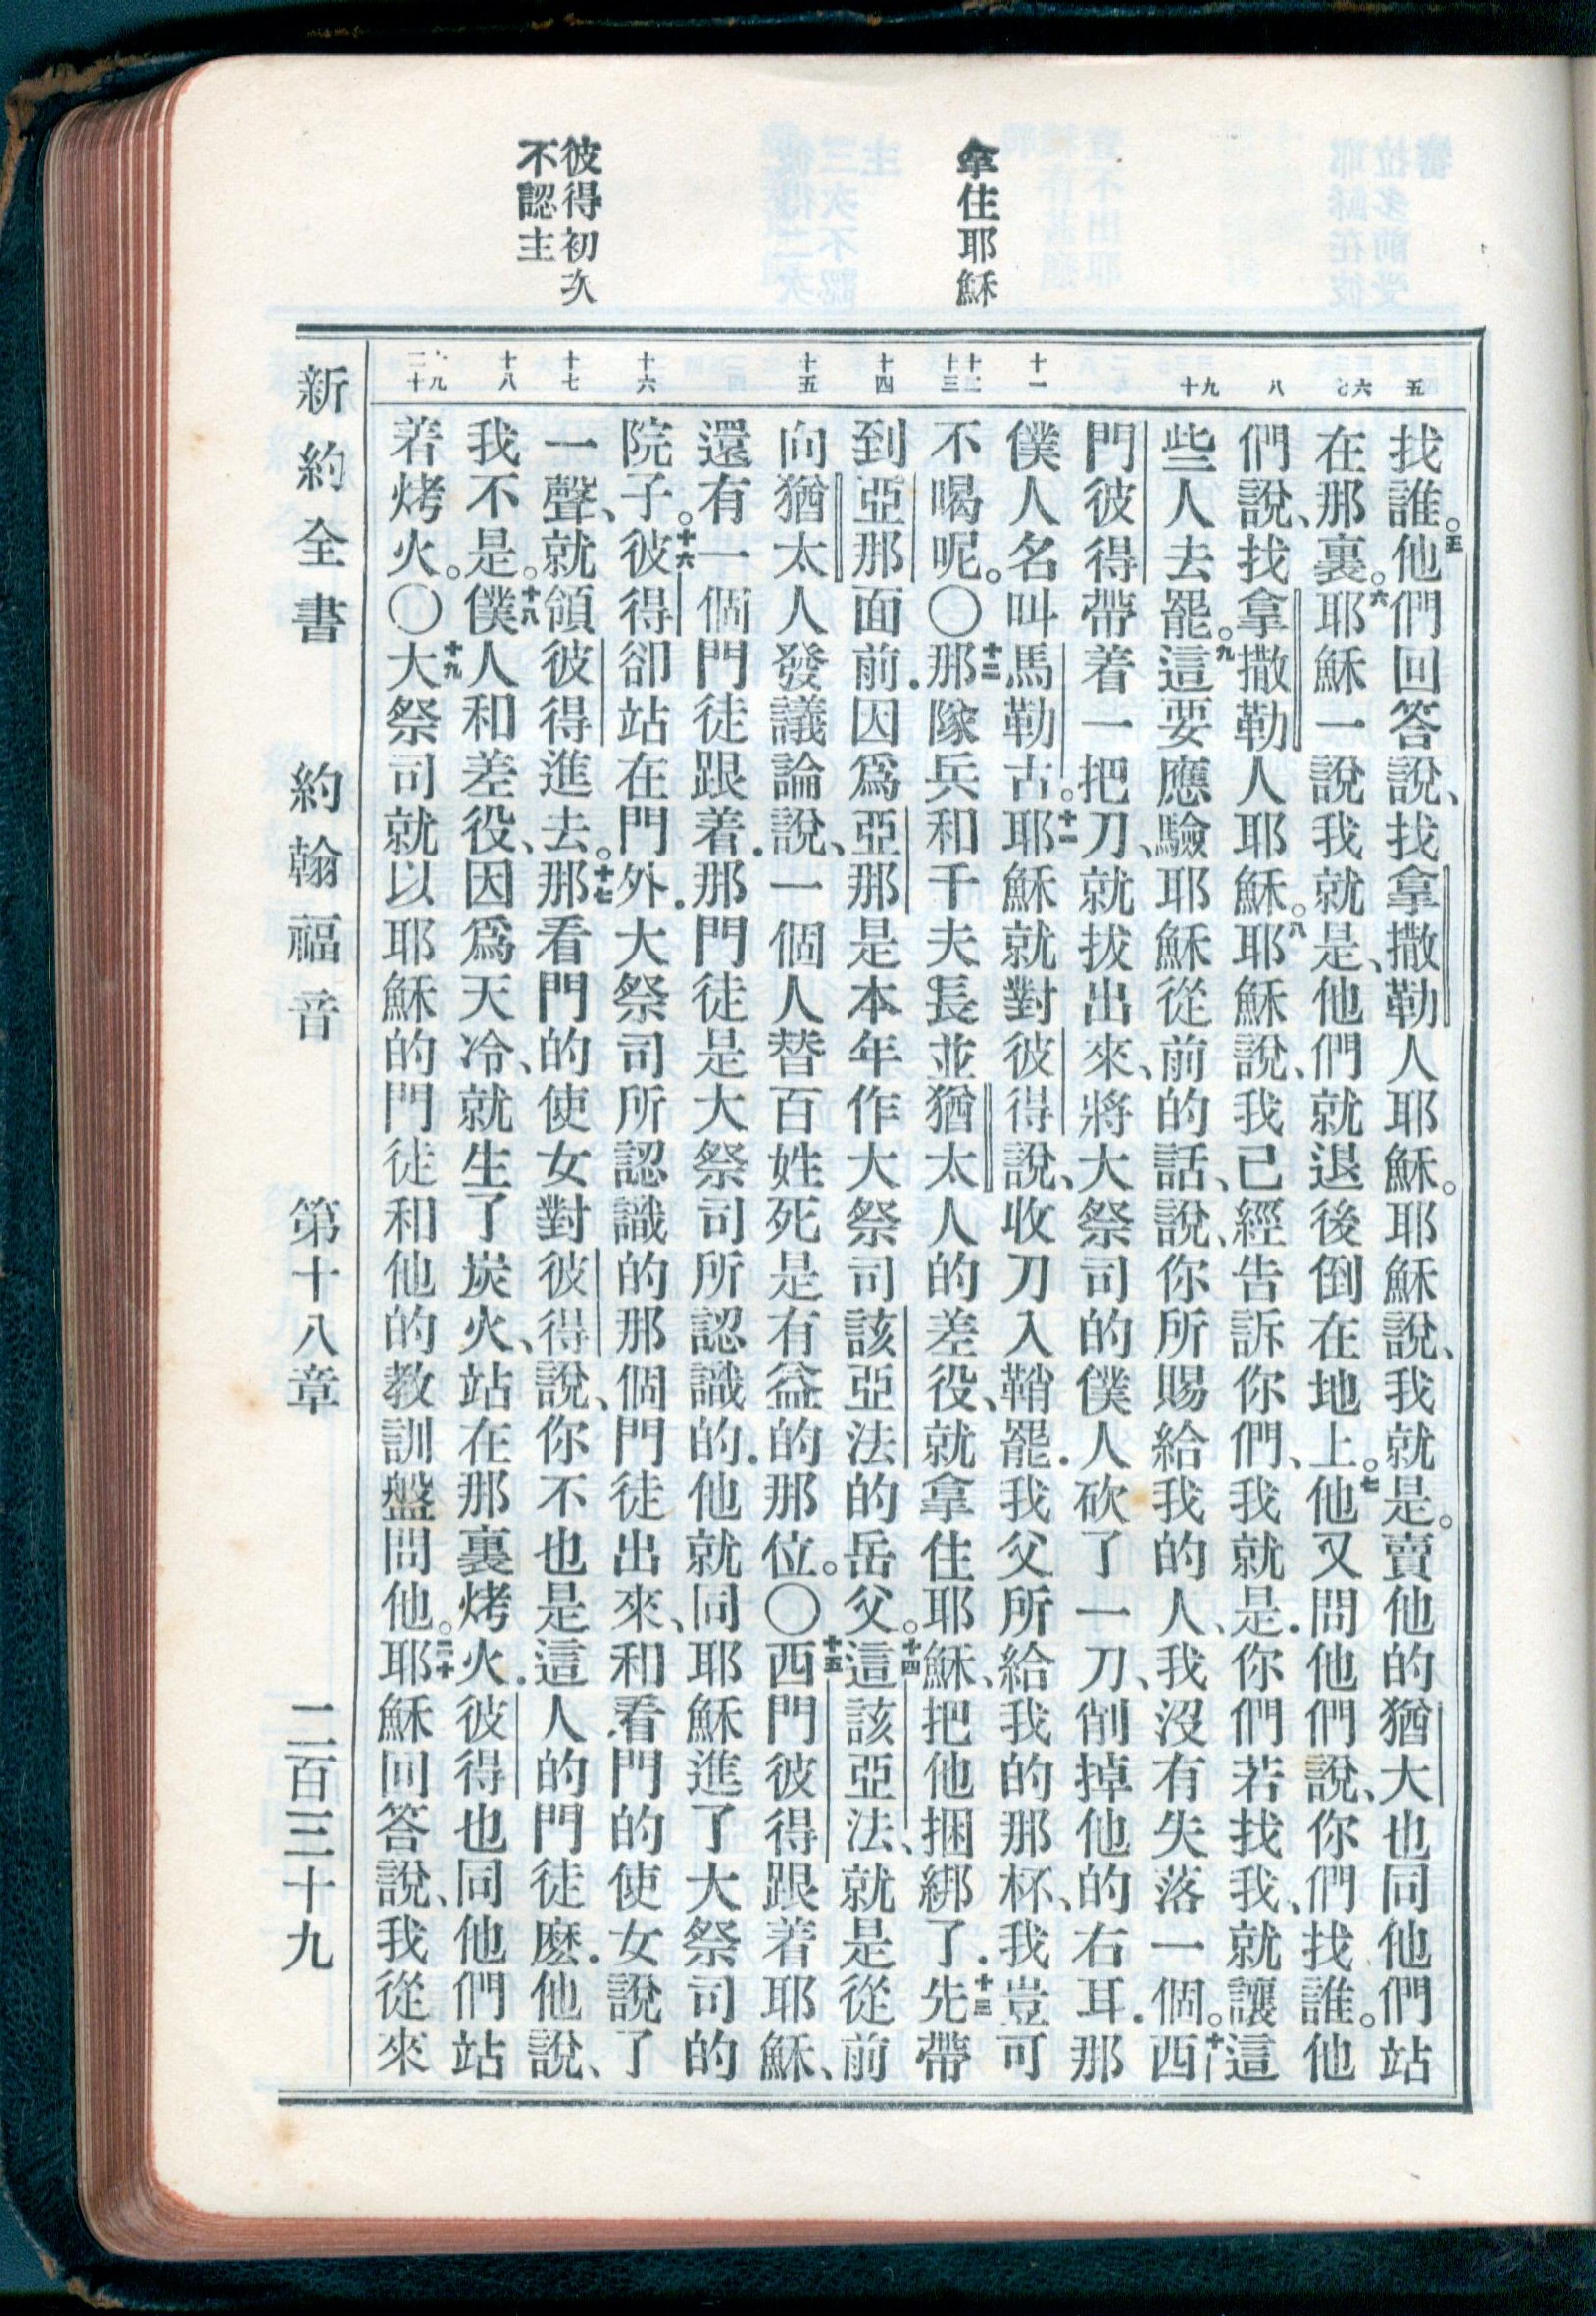 拿住耶穌
彼得初次
不認主
五
六
七
八
九
十
十一
十二
十三
十四
十五
十六
十七
十八
十九
二十
找誰。五他們回答說、找拿撒勒人耶穌。耶穌說、我就是。賣他的猶大也同他們站
在那裏。六耶穌一說我就是、他們就退後倒在地上。七他又問他們說、你們找誰。他
們說、找拿撒勒人耶穌。八耶穌說、我已經告訴你們、我就是．你們若找我、就讓這
些人去罷。九這要應驗耶穌從前的話、說、你所賜給我的人、我沒有失落一個。十西
門彼得帶着一把刀、就拔出來、將大祭司的僕人砍了一刀、削掉他的右耳．那
僕人名叫馬勒古。十一耶穌就對彼得說、收刀入鞘罷．我父所給我的那杯、我豈可
不喝呢。〇十二那隊兵和千夫長並猶太人的差役、就拿住耶穌、把他捆綁了．十三先帶
到亞那面前．因爲亞那是本年作大祭司該亞法的岳父。十四這該亞法、就是從前
向猶太人發議論說、一個人替百姓死是有益的那位。〇十五西門彼得跟着耶穌、
還有一個門徒跟着．那門徒是大祭司所認識的．他就同耶穌進了大祭司的
院子。十六彼得卻站在門外．大祭司所認識的那個門徒出來、和看門的使女說了
一聲、就領彼得進去。十七那看門的使女對彼得說、你不也是這人的門徒麽．他說、
我不是。十八僕人和差役、因爲天冷、就生了炭火、站在那裏烤火．彼得也同他們站
着烤火。〇十九大祭司就以耶穌的門徒和他的教訓盤問他。二十耶穌回答說、我從來
新約全書 約翰福音 第十八章 二百三十九